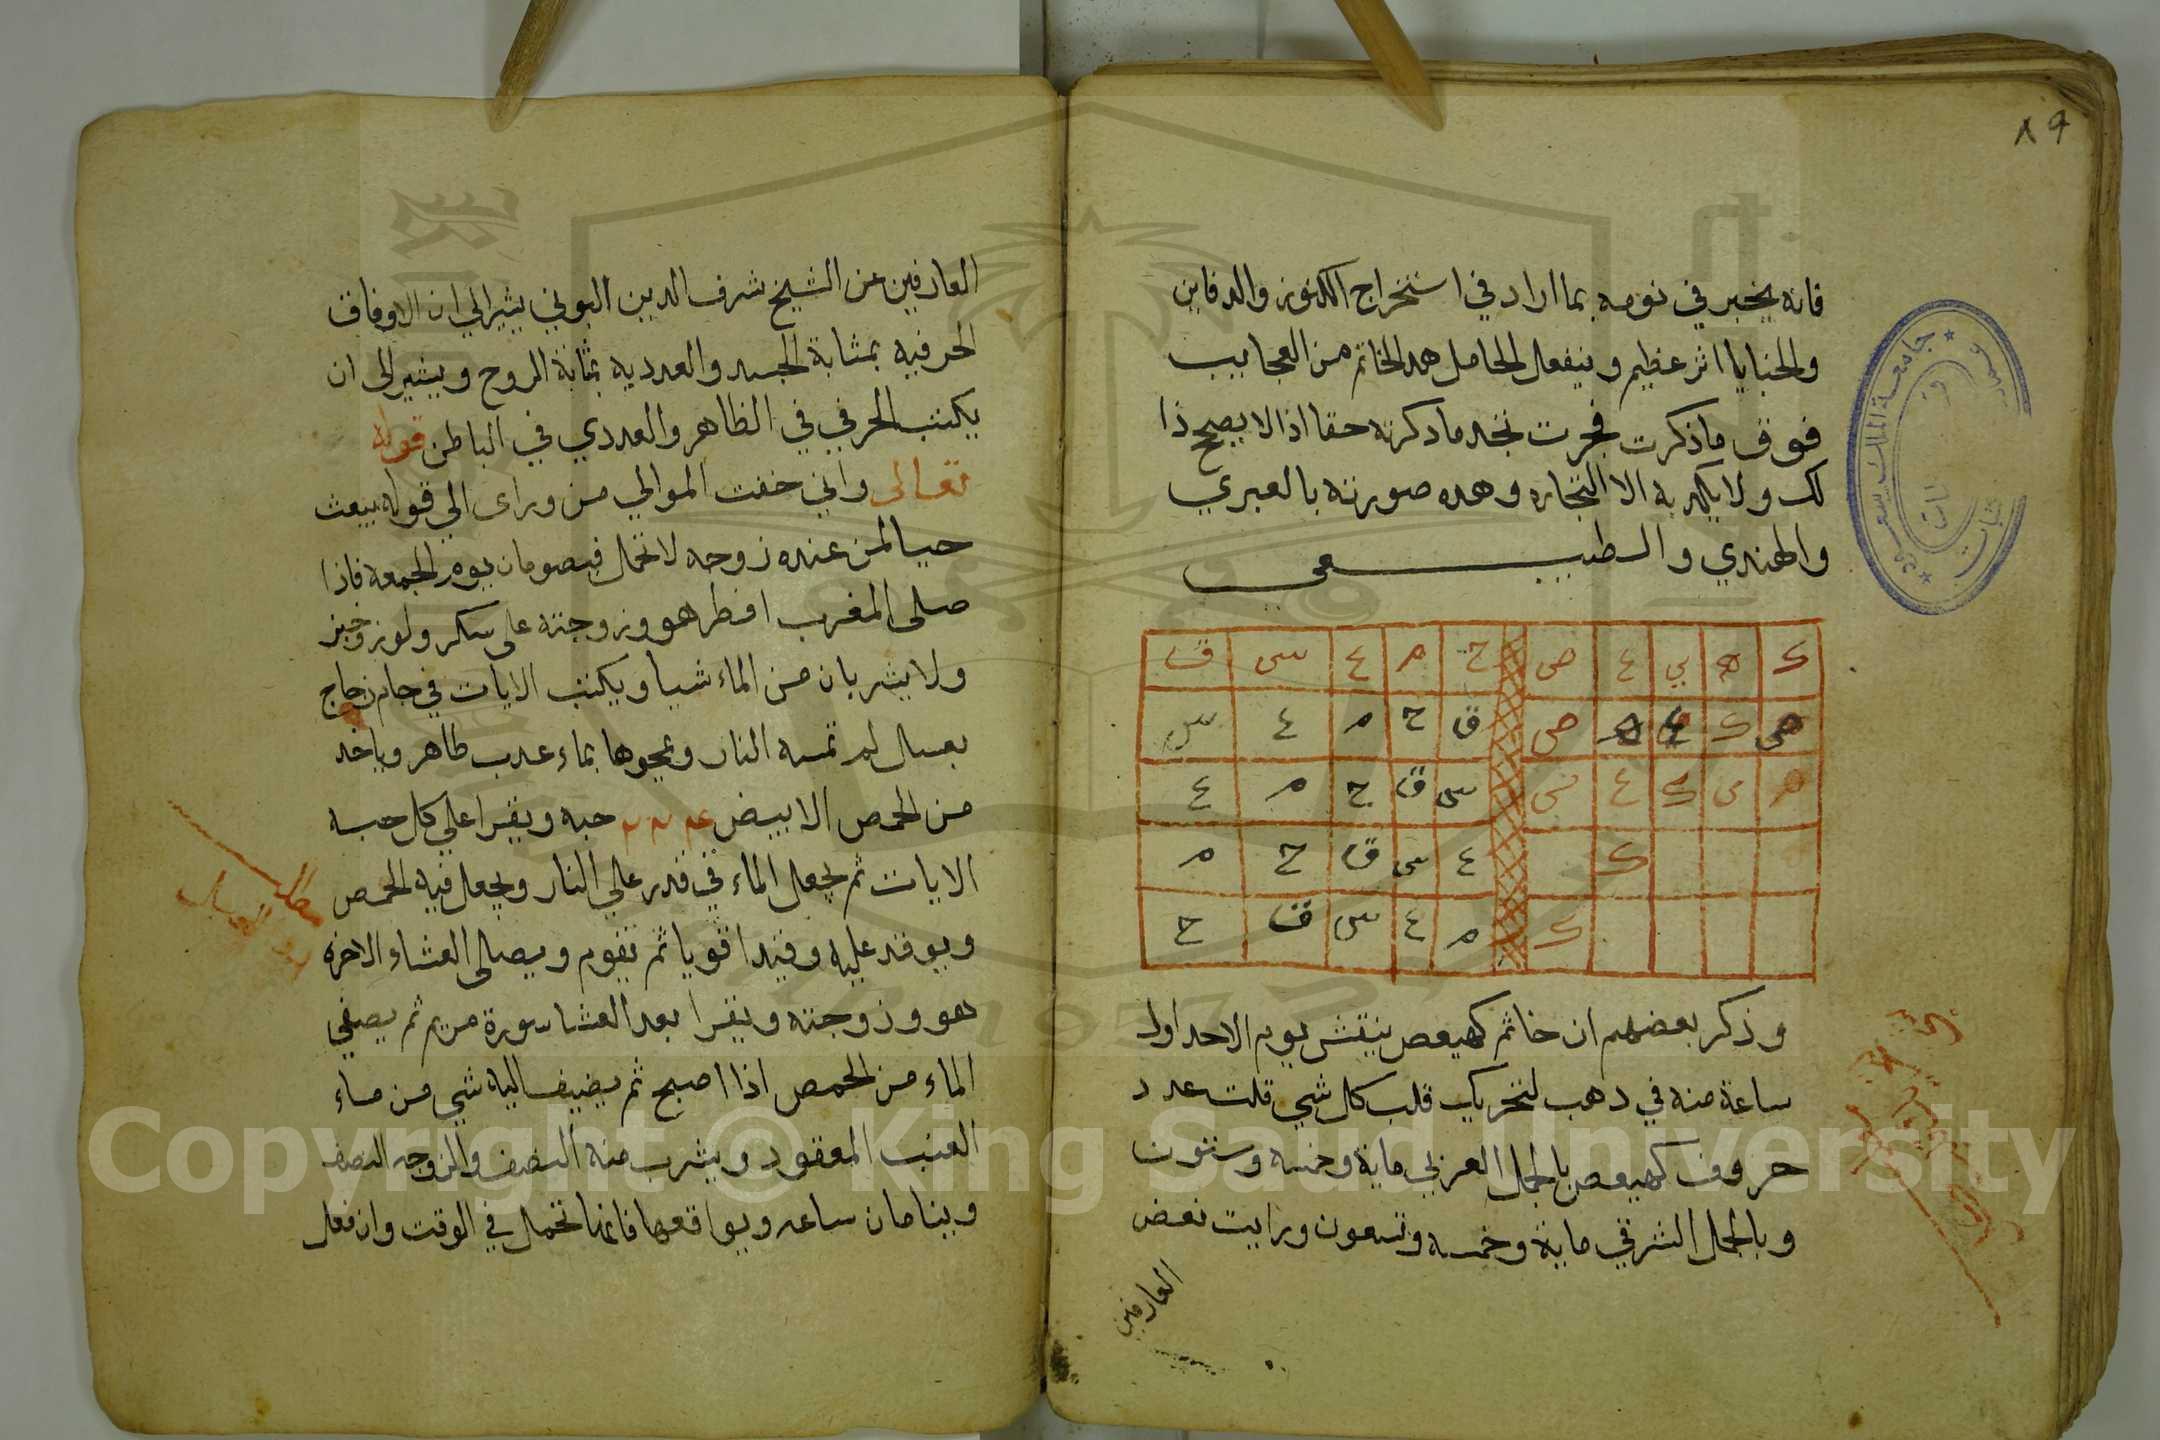 ٨٩
فانه يخبر في نومه بما اراد في استخراج الكنوز والدفاين
والخبايا اثر عظيم وينفعل لحامل هدا الخاتم من العجايب
فوق ما ذكرت فجرت تجد ما دكرته حقا اذ لا يصح ذا
لك ولا يكدبه الا التجاره وهده صورته بالعبري
والهندي والطبيعي
ك ه ي ع ص ح م ع س ق
ص ق ح م ع س
ع ص س ق ح م ع
ك ع س ق ح م
ك م ع س ق ح
وذكر بعضهم ان خاتم كهيعص ينقش يوم الاحد اول
ساعة منه في دهب لتحريك قلب كل شي قلت عدد
حروف كهيعص بالجمل العربي ماية وخمسه وستون
وبالجمل الشرقي ماية وخمسه وتسعون ورايت بعض
العارفين
العارفين عن الشيخ شرف الدين البوني يشير الي ان الاوفاق
الحرفيه بمثابة الجسد والعدديه بمثابة الروح ويشير الى ان
يكتب الحرفي في الظاهر والعددي في الباطن قوله
تعالى واني خفت الموالي من وراى الي قوله يبعث
حيا لمن عنده زوجه لا تحمل فيصومان يوم الجمعه فاذا
صلى المغرب افطر هو وزوجته على سكر ولوز وخبز
ولا يشربان من الماء شيا ويكتب الايات في جام زجاج
بعسل لم تمسه النار ويمحوها بماء عدب طاهر وياخد
من الحمص الابيض حبه ويقرا علي كل حبه
الايات ثم يجعل الماء في قدر علي النار ويجعل فيه الحمص
ويوقد عليه وقيدا قويا ثم تقوم ويصلى العشاء الاخره
هو وزوجته ويقرا بعد العشا سورة مريم ثم يصفي
الماء من الحمص اذا اصبح ثم يضيف اليه شي من ماء
العنب المعقود ويشرب منه النصف والزوجه النصف
وينامان ساعه ويواقعها فانها تحمل في الوقت وان فعل
جامعة الملك سعود
Copyright © King Saud University
1957